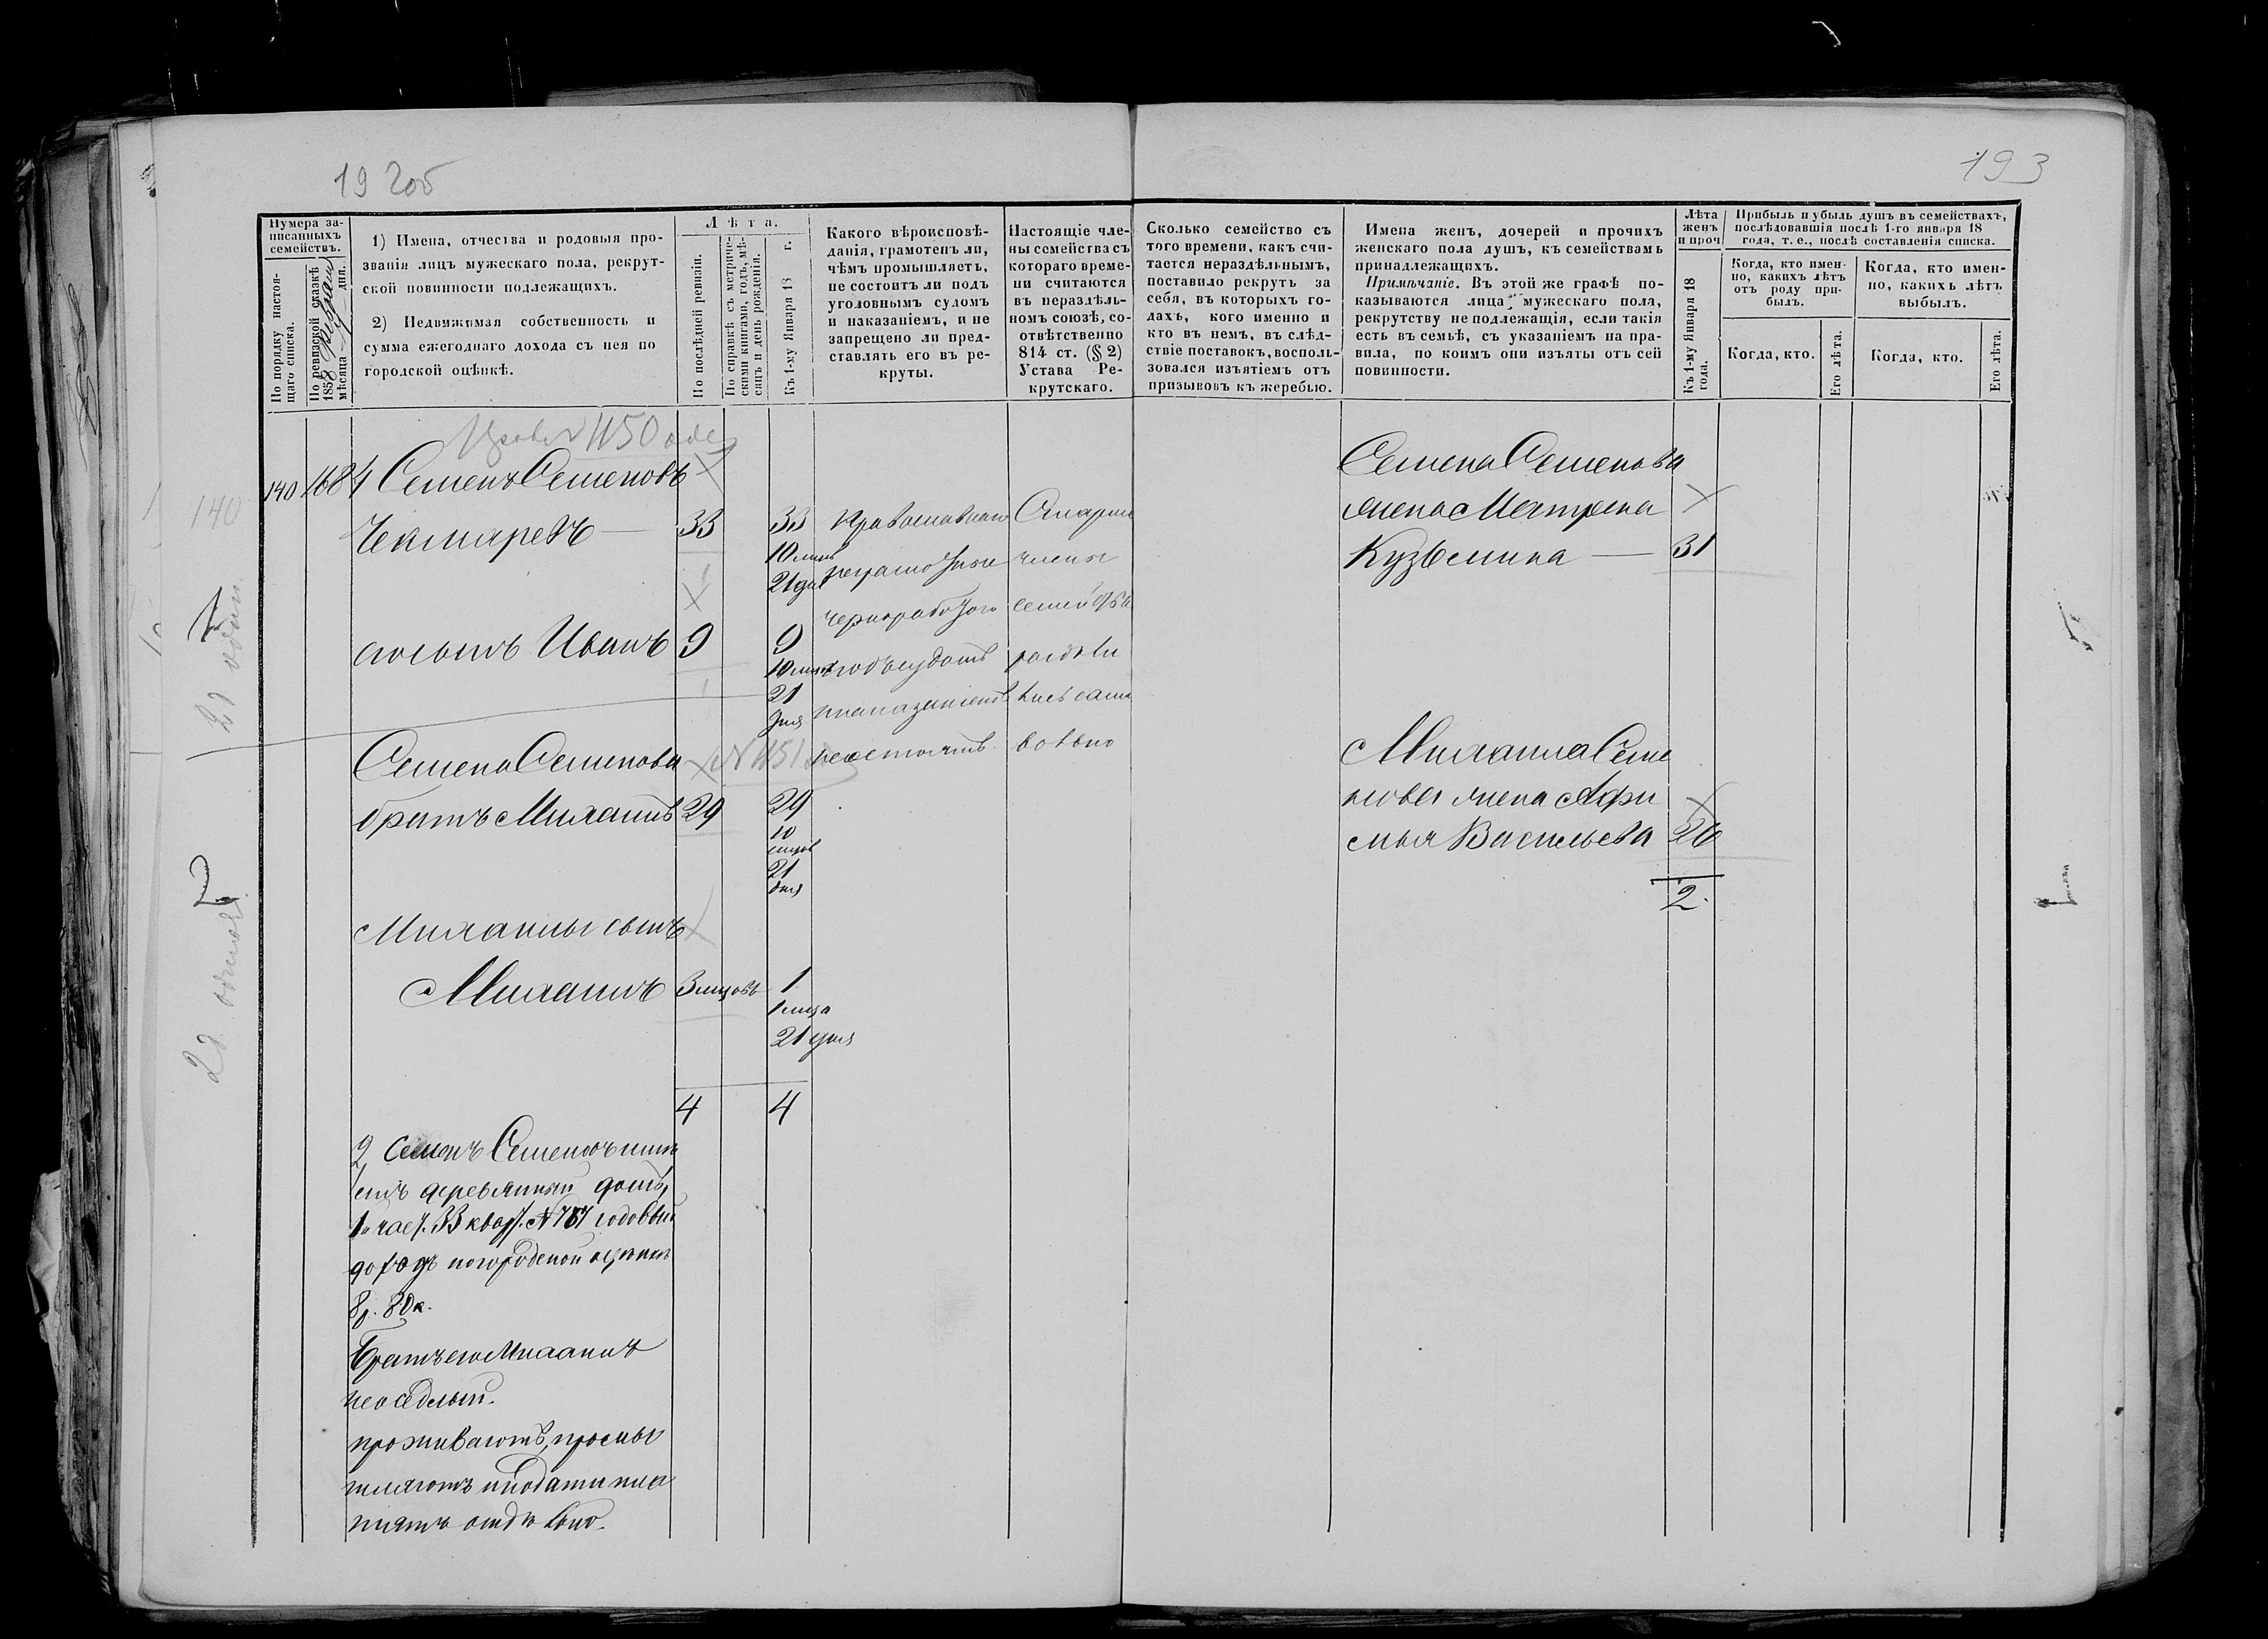 193
Нумера за-
писанныхъ
семействъ.
По порядку настоя-
щаго списка.
По ревизской сказкѣ
1858
мѣсяца дня.
1) Имена, отчества и родовыя про-
званія лицъ мужескаго пола, рекрут-
ской повинности подлежащихъ.
2) Недвижимая собственность и
сумма ежегоднаго дохода съ нея по
городской оцѣнкѣ.
Лѣта.
По послѣдней ревизіи.
По справкѣ съ метриче-
скими книгами, годъ, мѣ-
сяцъ и день рожденія.
Къ 1-му Января 18 г.
Какого вѣроисповѣ-
данія, грамотенъ ли,
чѣмъ промышляетъ,
не состоитъ ли подъ
уголовнымъ судомъ
и наказаніемъ, и не
запрещено ли пред-
ставлять его въ ре-
круты.
Настоящіе чле-
ны семейства съ
котораго време-
ни считаются
въ нераздѣль-
номъ союзѣ, со-
отвѣтственно
814 ст. (§ 2)
Устава Ре-
крутскаго.
Сколько семейство съ
того времени, какъ счи-
тается нераздѣльнымъ,
поставило рекрутъ за
себя, въ которыхъ го-
дахъ, кого именно и
кто въ немъ, въ слѣд-
ствіе поставокъ, восполь-
зовался изъятіемъ отъ
призывовъ къ жеребью.
Имена женъ, дочерей и прочихъ
женскаго пола душъ, къ семействамъ
принадлежащихъ.
Примѣчаніе. Въ этой же графѣ по-
казываются лица мужескаго пола,
рекрутству не подлежащія, если такія
есть въ семьѣ, съ указаніемъ на пра-
вила, по коимъ они изъяты отъ сей
повинности.
Лѣта
женъ
и проч
Къ 1-му Января 18
года.
Прибыль и убыль душъ въ семействахъ,
послѣдовавшія послѣ 1-го января 18
года, т. е., послѣ составленія списка.
Когда, кто имен-
но, какихъ лѣтъ
отъ роду при-
былъ.
Когда, кто имен-
но, какихъ лѣтъ
выбылъ.
Когда, кто.
Его лѣта.
Когда, кто.
Его лѣта.
1150
140 168 1 Семенъ Семеновъ
Чекмаревъ — 33 33
10 21
сынъ Иванъ 9 9
10
21
дня
Православнаго
неграмотные
чернорабочаго
подъ судомъ
и наказаніемъ
несостоятъ.
Старшіе
члены
семейства
Семена Семенова
братъ Михаилъ 29 29
10
21
дня
№ 1151
Михаилы сынъ
Михаилъ 3 мцовъ 1
1 мца
21 дня
4 4
2, Семенъ Семеновъ имѣ
етъ деревянный домъ,
1й час. 33 кварт. № 787 годовый
доходъ по городской оцѣнкѣ
8 р. 80 к.
Братъ его Михаилъ
неоседлый.
проживаютъ, промы
шляютъ и подати пла
тятъ отдѣльно.
Семена Семенова
жена Матрена
Кузьмина — 31
Михаила Семе
нова жена Афи
мья Васильева 26
2.
140